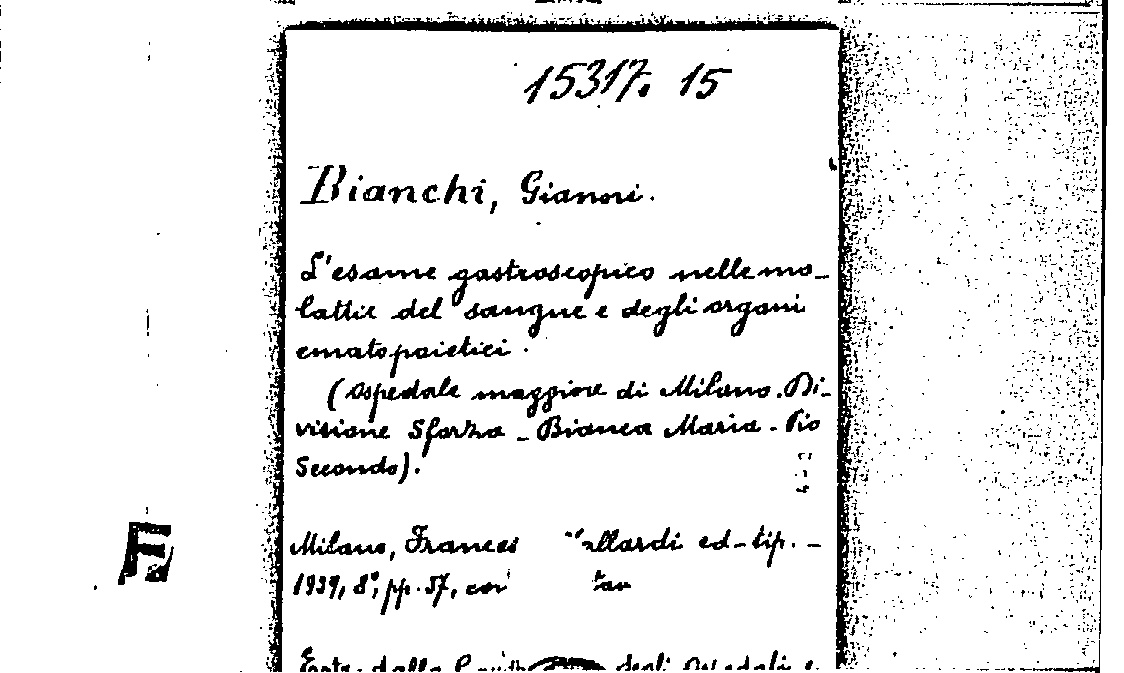 15317. 15
Bianchi, Gianni.
L'esame gastroscopico nelle ma_
lattie del sangue e degli organi
ematopoietici.
(Ospedale maggiore di Milano. Di_
visione Sforza _ Bianca Maria - Pio
Secondo).
Milano, Frances allardi ed-tip. _
1939, 8°, pp. 57, con tav
Estr. dalla degli Ospedali e